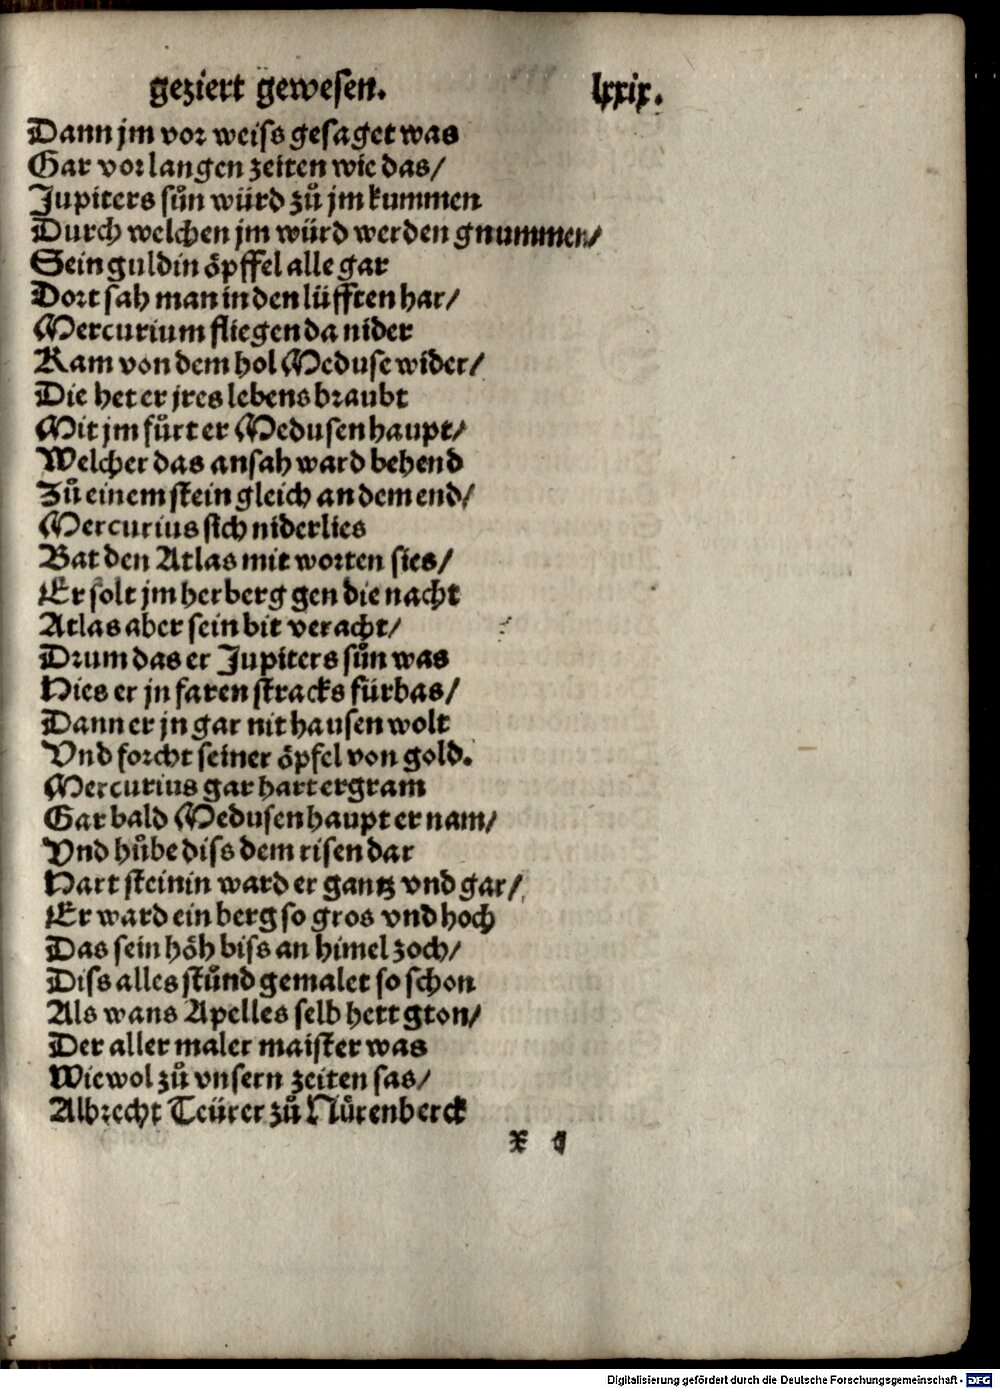 geziert gewesen. lxxix.
Dann jm vor weiss gesaget was
Gar vor langen zeiten wie das/
Jupiters sůn würd zů jm kummen
Durch welchen jm würd werden gnummen/
Sein guldin öpffel alle gar
Dort sah man in den lüfften har/
Mercurium fliegen da nider
Kam von dem hol Meduse wider/
Die het er jres lebens braubt
Mit jm fůrt er Medusen haupt/
Welcher das ansah ward behend
Zů einem stein gleich an dem end/
Mercurius sich niderlies
Bat den Atlas mit worten sies/
Er solt jm herberg gen die nacht
Atlas aber sein bit veracht/
Drum das er Jupiters sůn was
Hies er jn faren stracks fürbas/
Dann er jn gar nit hausen wolt
Vnd forcht seiner öpfel von gold.
Mercurius gar hart ergram
Gar bald Medusen haupt er nam/
Vnd hůbe diss dem risen dar
Hart steinin ward er gantz vnd gar/
Er ward ein berg so gros vnd hoch
Das sein höh biss an himel zoch/
Diss alles stůnd gemalet so schon
Als wans Apelles selb hett gton/
Der aller maler maister was
Wiewol zů vnsern zeiten sas/
Albrecht Teürer zů Nürenberck
x
Digitalisierung gefördert durch die Deutsche Forschungsgemeinschaft - DFG